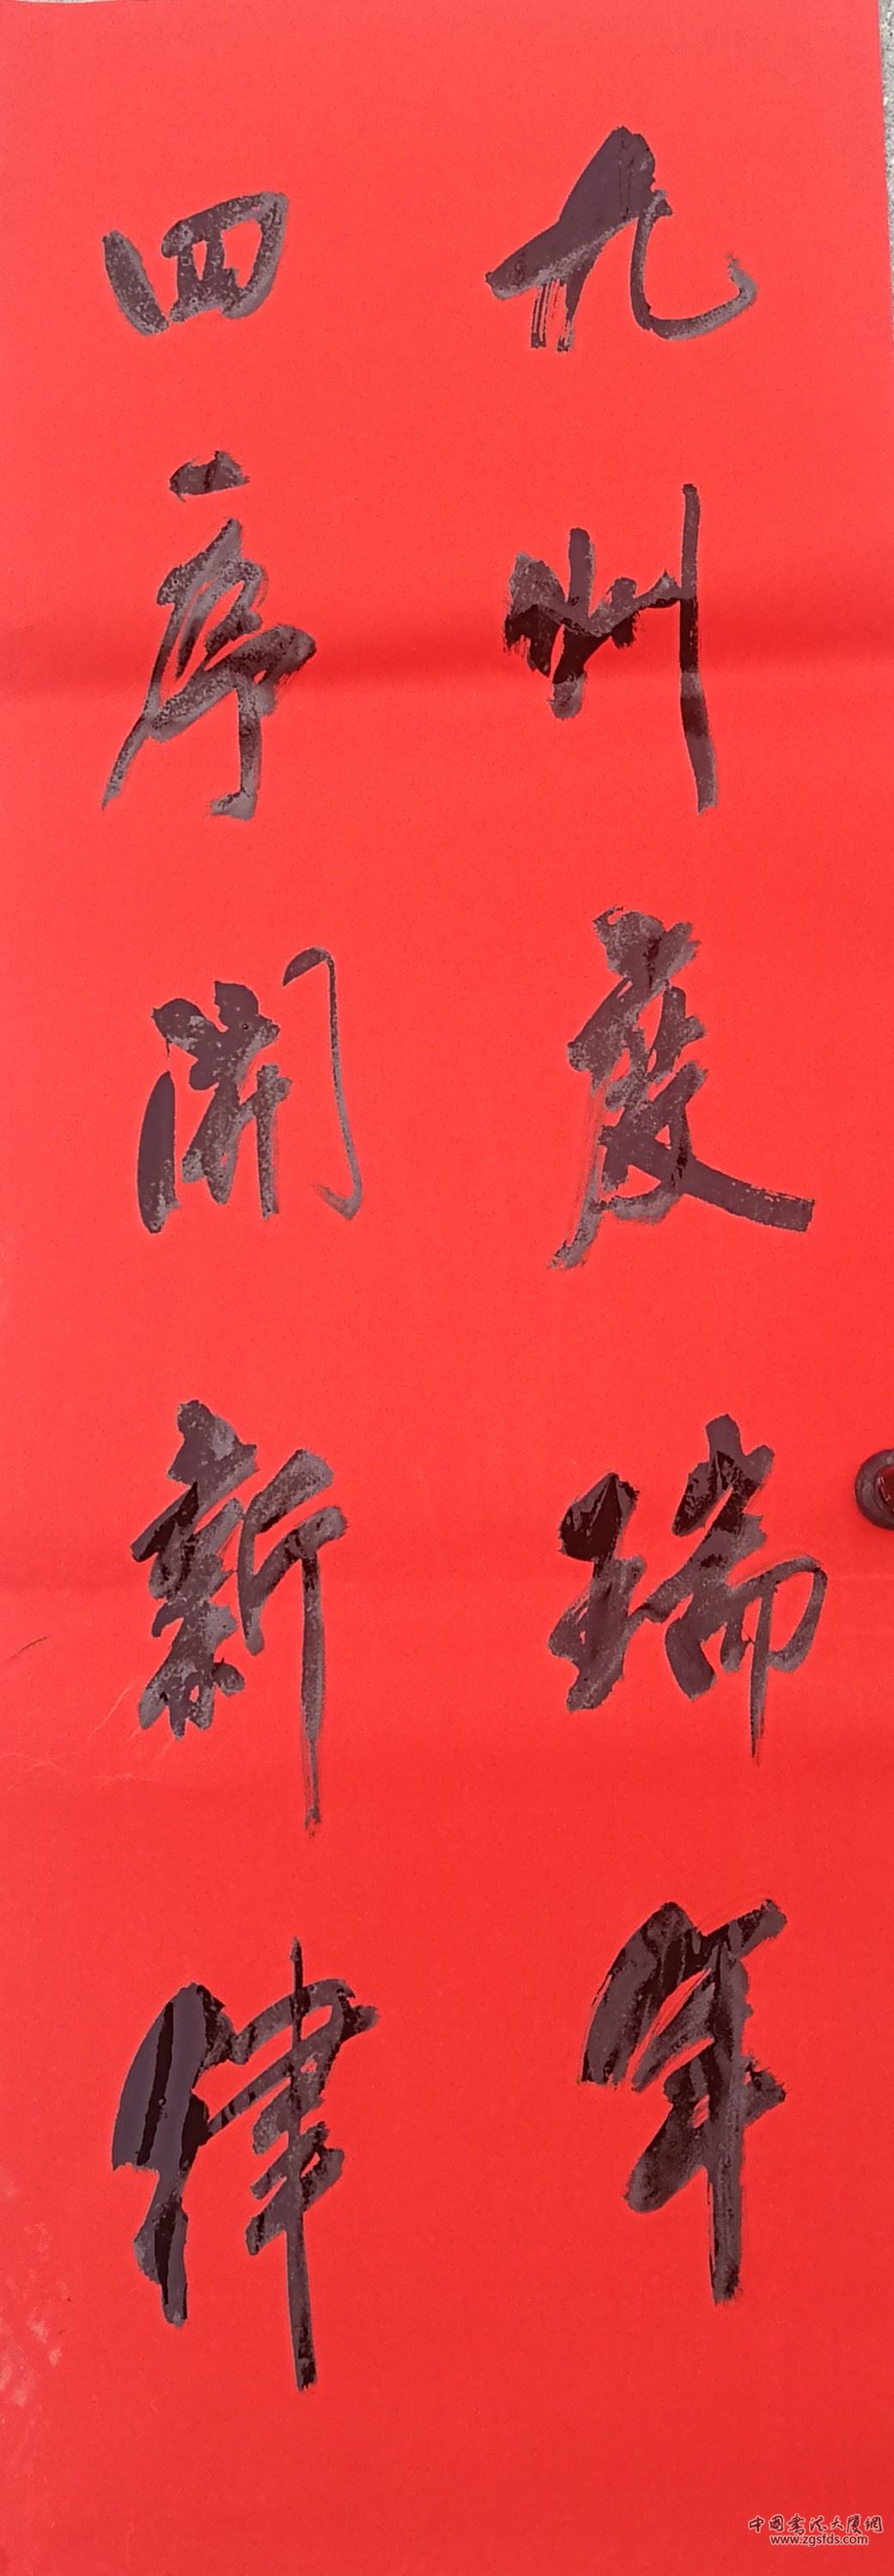 九州度瑞年
四序開新律
中国书法大厦網
www.zgsfds.com